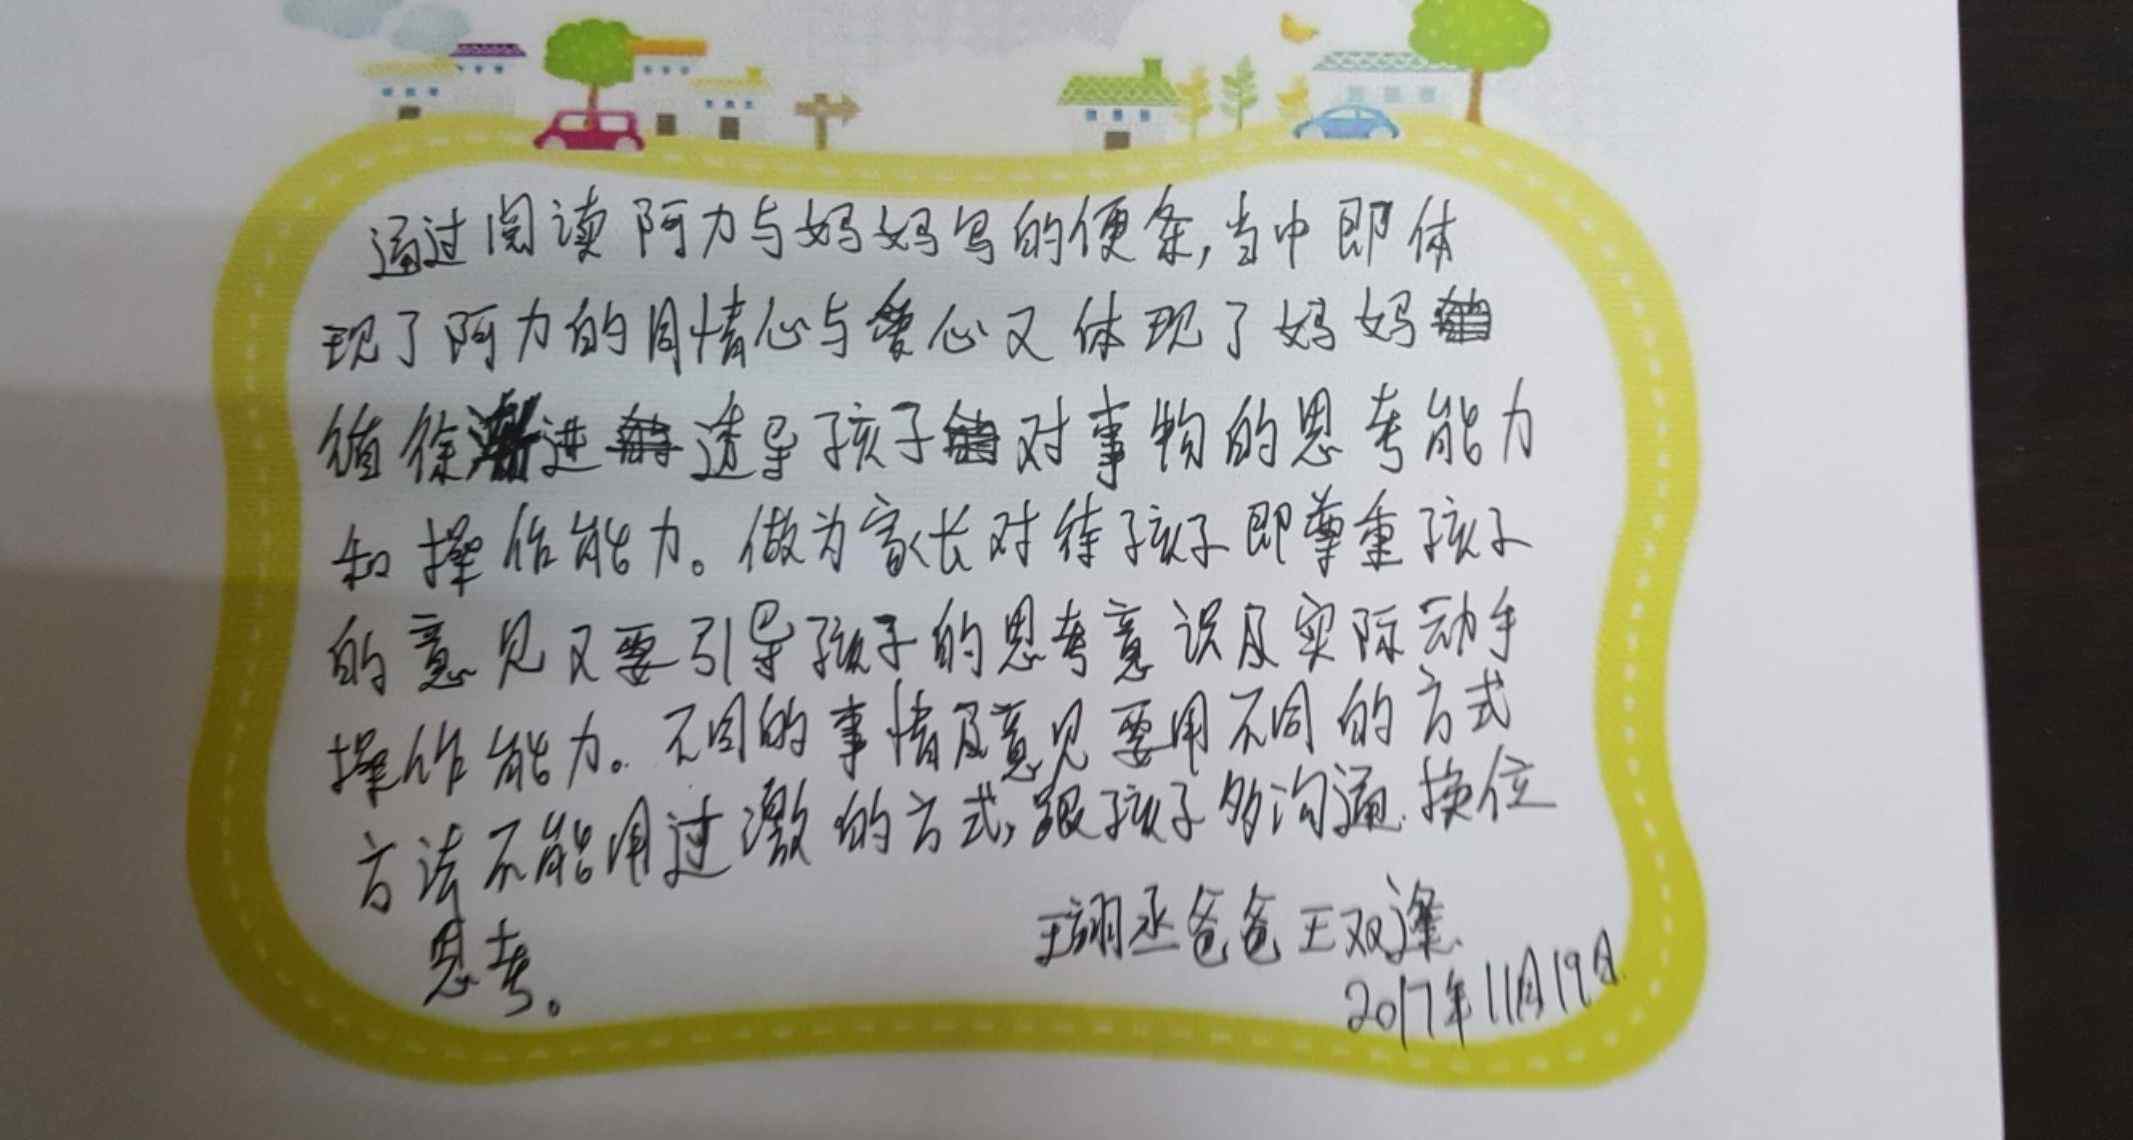 通过阅读阿力与妈妈写的便条,当中即体
现了阿力的同情心与爱心又体现了妈妈
循徐渐进诱导孩子对事物的思考能力
和操作能力。做为家长对待孩子即尊重孩子
的意见又要引导孩子的思考意识及实际动手
操作能力。不同的事情及意见要用不同的方式
方法不能用过激的方式,跟孩子多沟通.换位
思考。
王翊丞爸爸王双逢
2017年11月19日